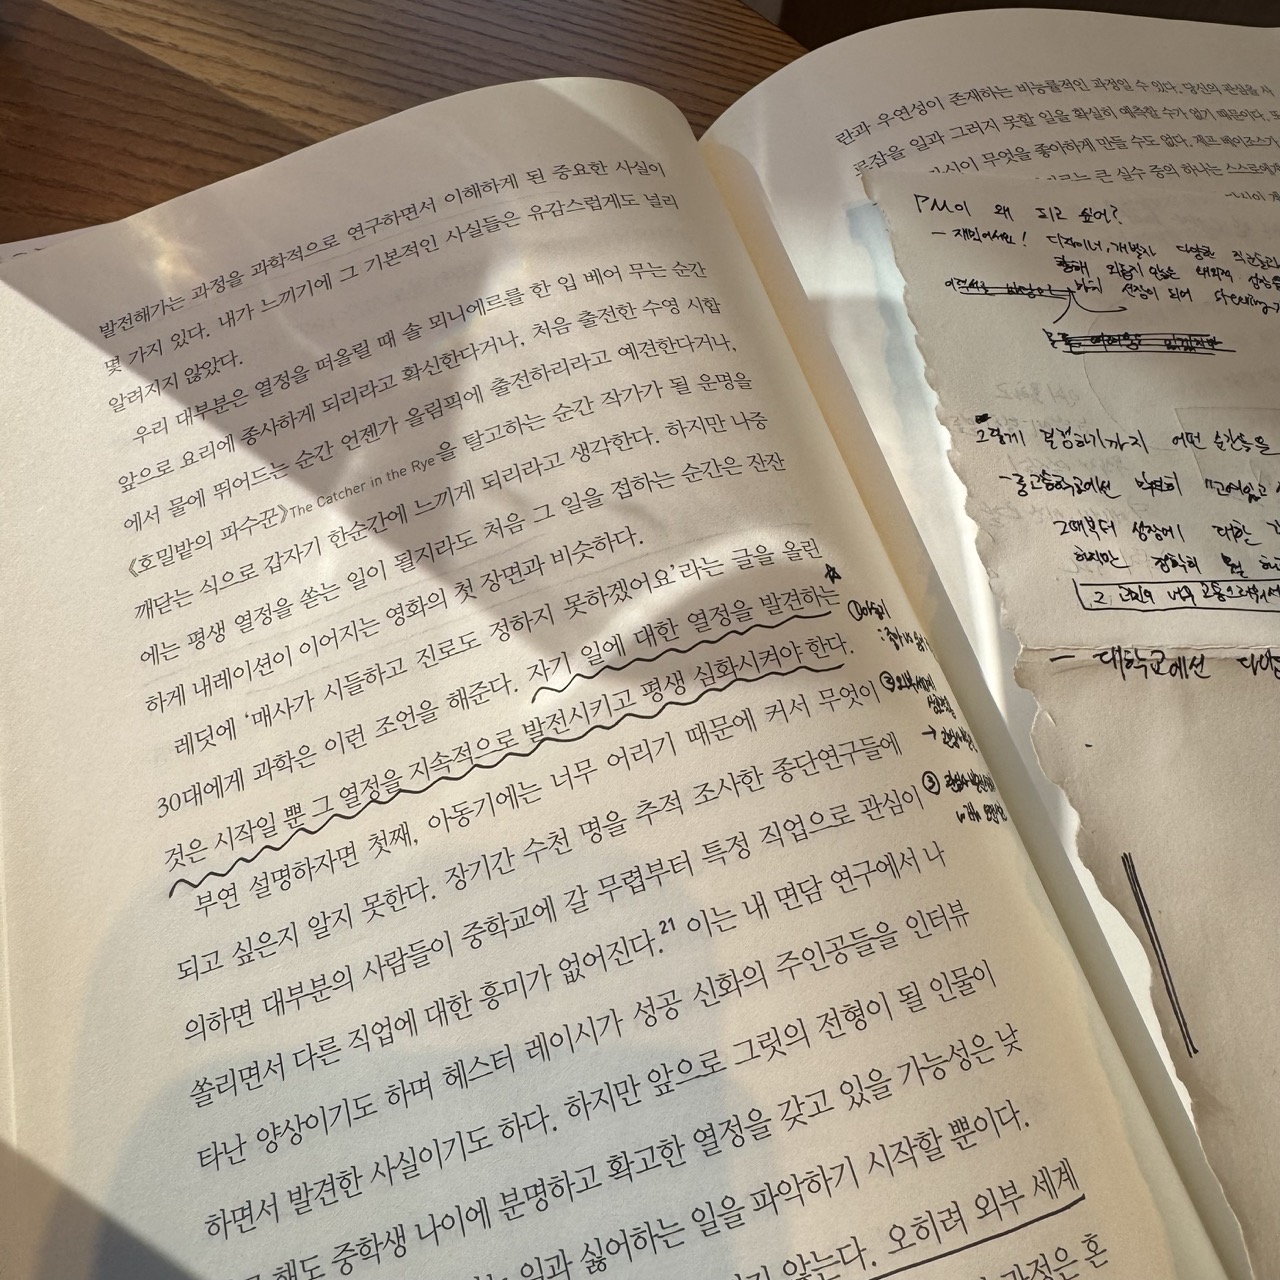 발전해가는 과정을 과학적으로 연구하면서 이해하게 된 중요한 사실이
몇 가지 있다. 내가 느끼기에 그 기본적인 사실들은 유감스럽게도 널리
알려지지 않았다.
우리 대부분은 열정을 떠올릴 때 솔 뫼니에르를 한 입 베어 무는 순간
앞으로 요리에 종사하게 되리라고 확신한다거나, 처음 출전한 수영 시합
에서 물에 뛰어드는 순간 언젠가 올림픽에 출전하리라고 예견한다거나,
《호밀밭의 파수꾼》The Catcher in the Rye을 탈고하는 순간 작가가 될 운명을
깨닫는 식으로 갑자기 한순간에 느끼게 되리라고 생각한다. 하지만 나중
에는 평생 열정을 쏟는 일이 될지라도 처음 그 일을 접하는 순간은 잔잔
하게 내레이션이 이어지는 영화의 첫 장면과 비슷하다.
레딧에 ‘매사가 시들하고 진로도 정하지 못하겠어요’라는 글을 올린
30대에게 과학은 이런 조언을 해준다. 자기 일에 대한 열정을 발견하는
것은 시작일 뿐 그 열정을 지속적으로 발전시키고 평생 심화시켜야 한다.
부연 설명하자면 첫째, 아동기에는 너무 어리기 때문에 커서 무엇이
되고 싶은지 알지 못한다. 장기간 수천 명을 추적 조사한 종단연구들에
의하면 대부분의 사람들이 중학교에 갈 무렵부터 특정 직업으로 관심이
쏠리면서 다른 직업에 대한 흥미가 없어진다.21 이는 내 면담 연구에서 나
타난 양상이기도 하며 헤스터 레이시가 성공 신화의 주인공들을 인터뷰
하면서 발견한 사실이기도 하다. 하지만 앞으로 그럿의 전형이 될 인물이
해도 중학생 나이에 분명하고 확고한 열정을 갖고 있을 가능성은 낮
일과 싫어하는 일을 파악하기 시작할 뿐이다.
않는다. 오히려 외부 세계
과정은 혼
①
②외부세계
→
③
란과 우연성이 존재하는 비능률적인 과정일 수 있다. 당신의 관심을 사
로잡을 일과 그러지 못할 일을 확실히 예측할 수가 없기 때문이다. 또
무엇을 좋아하게 만들 수도 없다. 제프 베이조스가
큰 실수 중의 하나는 스스로에게
PM이 왜 되고 싶어?
- 재밌어서요! 디자이너, 개발자 다양한
통해
선장이 되어
그렇게 결정하기까지 어떤 순간들을
- 중고등학교에선
그때부터 성장에 대한
하지만
2.
- 대학교에선